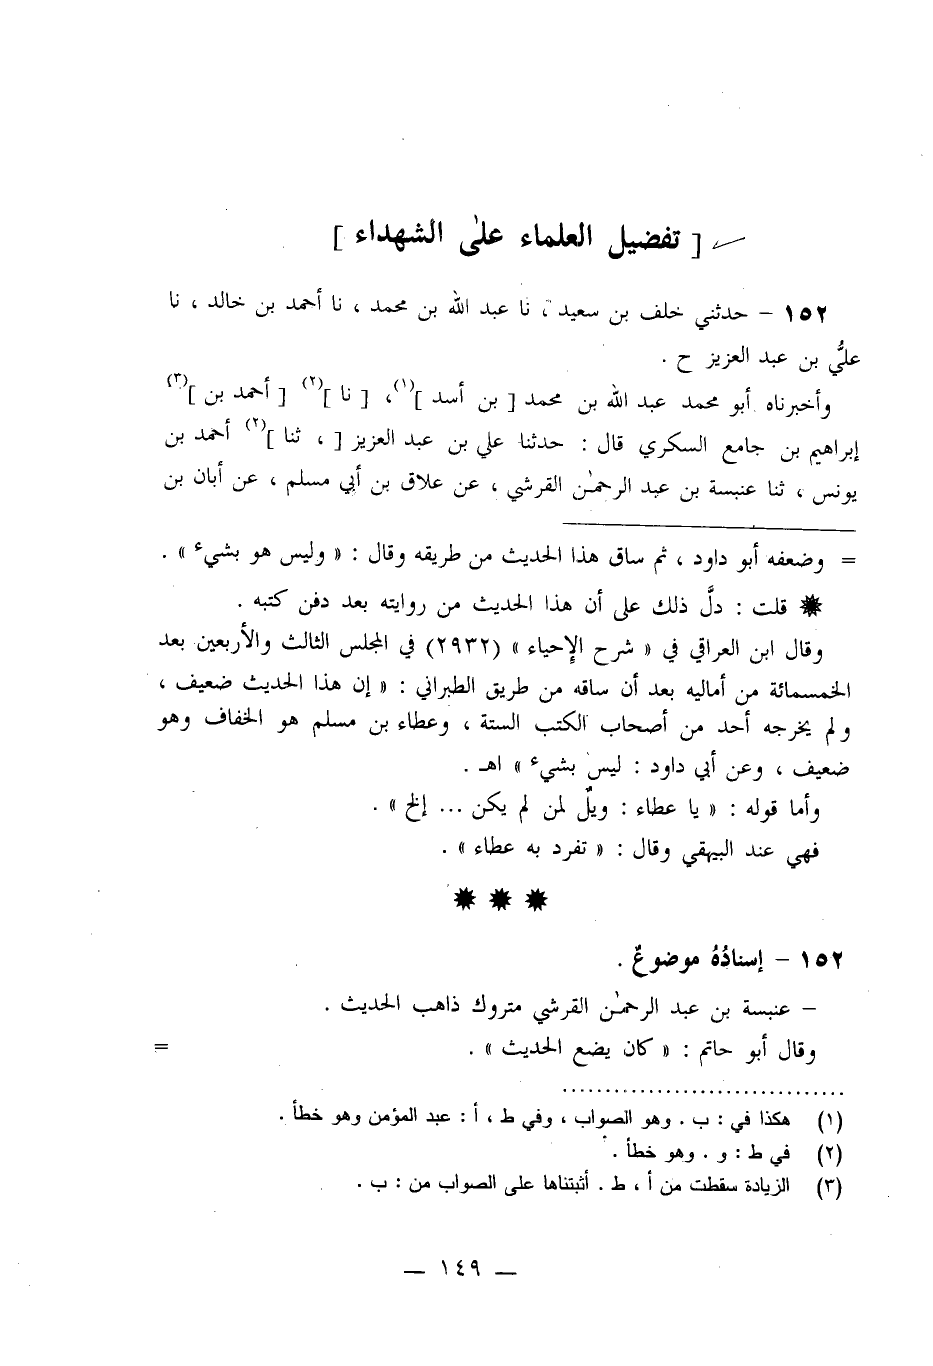 [ تفضيل العلماء على الشهداء ]
١٥٢ - حدثني خلف بن سعيد ، نا عبد الله بن محمد ، نا أحمد بن خالد ، نا
عليُّ بن عبد العزيز ح .
وأخبرناه أبو محمد عبد الله بن محمد [ بن أسد ](١)، [ نا ](٢) [ أحمد بن ](٣)
إبراهيم بن جامع السكري قال : حدثنا علي بن عبد العزيز [ ، ثنا ](٢) أحمد بن
يونس ، ثنا عنبسة بن عبد الرحمٰن القرشي ، عن علاق بن أبي مسلم ، عن أبان بن
= وضعفه أبو داود ، ثم ساق هذا الحديث من طريقه وقال : « وليس هو بشيء » .
✸ قلت : دلَّ ذلك على أن هذا الحديث من روايته بعد دفن كتبه .
وقال ابن العراقي في « شرح الإحياء » (٢٩٣٢) في المجلس الثالث والأربعين بعد
الخمسمائة من أماليه بعد أن ساقه من طريق الطبراني : « إن هذا الحديث ضعيف ،
ولم يخرجه أحد من أصحاب الكتب الستة ، وعطاء بن مسلم هو الخفاف وهو
ضعيف ، وعن أبي داود : ليس بشيء » اهـ .
وأما قوله : « يا عطاء : ويلٌ لمن لم يكن ... إلخ » .
فهي عند البيهقي وقال : « تفرد به عطاء » .
✸ ✸ ✸
١٥٢ - إسنادُهُ موضوعٌ .
- عنبسة بن عبد الرحمٰن القرشي متروك ذاهب الحديث .
وقال أبو حاتم : « كان يضع الحديث » . =
(١) هكذا في : ب . وهو الصواب ، وفي ط ، أ : عبد المؤمن وهو خطأ .
(٢) في ط : و . وهو خطأ .
(٣) الزيادة سقطت من أ ، ط . أثبتناها على الصواب من : ب .
— ١٤٩ —